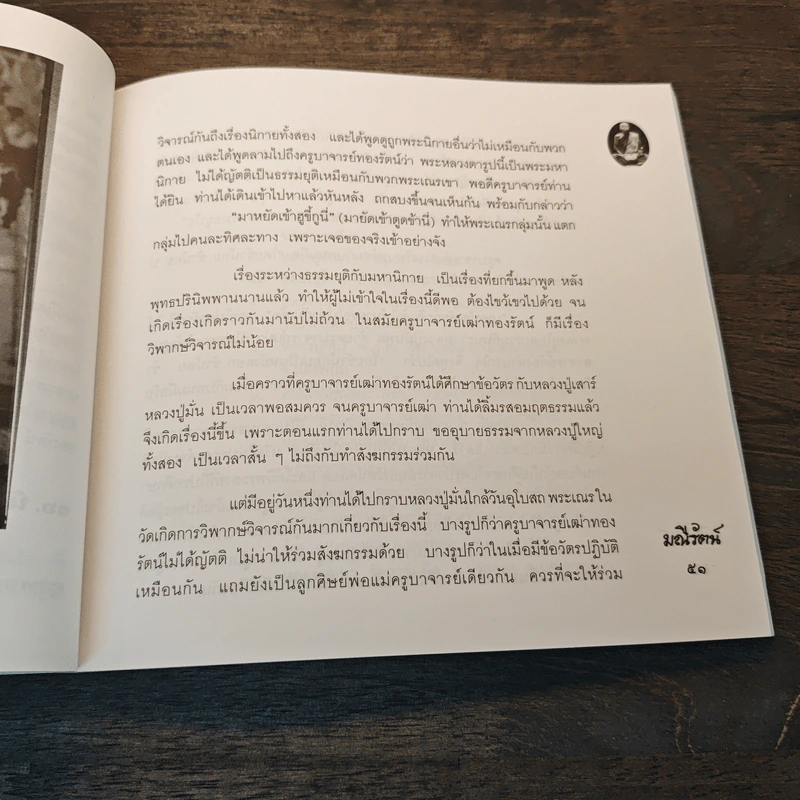 วิจารณ์กันถึงเรื่องนิกายทั้งสอง และได้พูดดูถูกพระนิกายอื่นว่าไม่เหมือนกับพวก
ตนเอง และได้พูดลามไปถึงครูบาจารย์ทองรัตน์ว่า พระหลวงตารูปนี้เป็นพระมหา
นิกาย ไม่ได้ญัตติเป็นธรรมยุติเหมือนกับพวกพระเณรเขา พอดีครูบาจารย์ท่าน
ได้ยิน ท่านได้เดินเข้าไปหาแล้วหันหลัง ถกสบงขึ้นจนเห็นก้น พร้อมกับกล่าวว่า
"มาหยัดเข้าฮูขี้กูนี่" (มายัดเข้าตูดข้านี่) ทำให้พระเณรกลุ่มนั้น แตก
กลุ่มไปคนละทิศละทาง เพราะเจอของจริงเข้าอย่างจัง
เรื่องระหว่างธรรมยุติกับมหานิกาย เป็นเรื่องที่ยกขึ้นมาพูด หลัง
พุทธปรินิพพานนานแล้ว ทำให้ผู้ไม่เข้าใจในเรื่องนี้ดีพอ ต้องไขว้เขวไปด้วย จน
เกิดเรื่องเกิดราวกันมานับไม่ถ้วน ในสมัยครูบาจารย์เฒ่าทองรัตน์ ก็มีเรื่อง
วิพากษ์วิจารณ์ไม่น้อย
เมื่อคราวที่ครูบาจารย์เฒ่าทองรัตน์ได้ศึกษาข้อวัตร กับหลวงปู่เสาร์
หลวงปู่มั่น เป็นเวลาพอสมควร จนครูบาจารย์เฒ่า ท่านได้ลิ้มรสอมฤตธรรมแล้ว
จึงเกิดเรื่องนี้ขึ้น เพราะตอนแรกท่านได้ไปกราบ ขออุบายธรรมจากหลวงปู่ใหญ่
ทั้งสอง เป็นเวลาสั้น ๆ ไม่ถึงกับทำสังฆกรรมร่วมกัน
แต่มีอยู่วันหนึ่งท่านได้ไปกราบหลวงปู่มั่นใกล้วันอุโบสถ พระเณรใน
วัดเกิดการวิพากษ์วิจารณ์กันมากเกี่ยวกับเรื่องนี้ บางรูปก็ว่าครูบาจารย์เฒ่าทอง
รัตน์ไม่ได้ญัตติ ไม่น่าให้ร่วมสังฆกรรมด้วย บางรูปก็ว่าในเมื่อมีข้อวัตรปฏิบัติ
เหมือนกัน แถมยังเป็นลูกศิษย์พ่อแม่ครูบาจารย์เดียวกัน ควรที่จะให้ร่วม
มณีรัตน์
๕๑